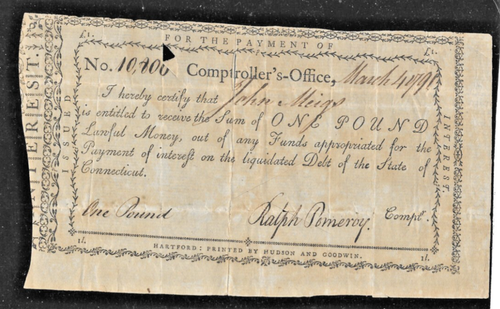 £1. £1.
FOR THE PAYMENT OF
INTEREST.
ISSUED
No. 10,206 Comptroller's-Office, March 4 179
I hereby certify that John Meigs
is entitled to receive the Sum of ONE POUND
Lawful Money, out of any Funds appropriated for the
Payment of interest on the liquidated Debt of the State of
Connecticut.
One Pound Ralph Pomeroy. Compl.
1l. 1l.
HARTFORD: PRINTED BY HUDSON AND GOODWIN.
INTEREST.